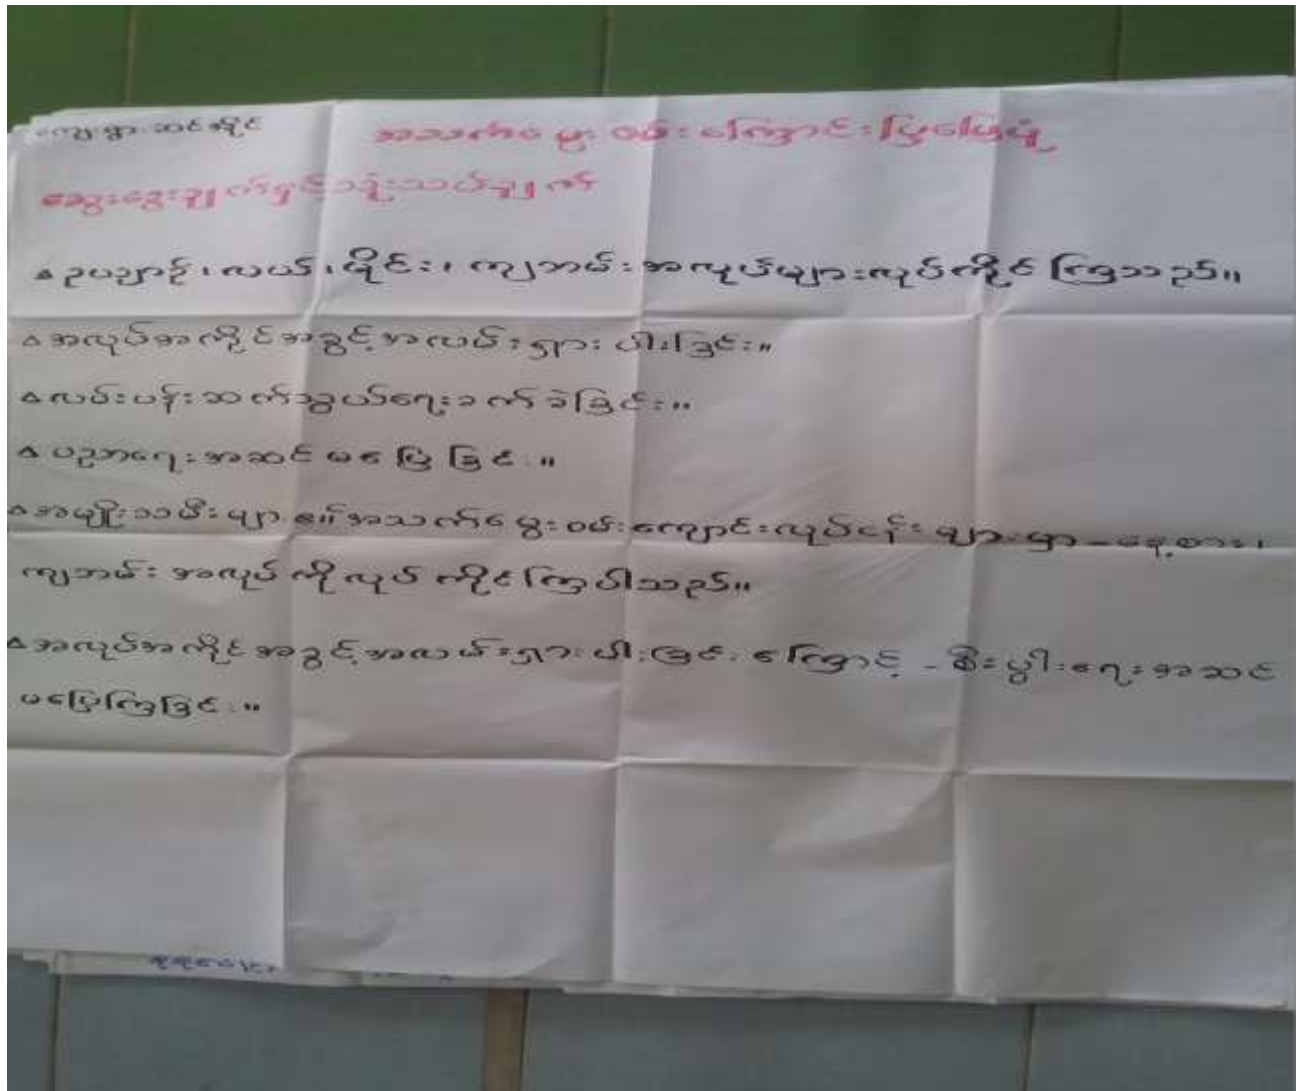 ကျေးရွာ ဆင်ဒိုင်
အသက်မွေး ဝမ်းကြောင်း ပြုပြေပုံ
ဆွေးနွေးချက်နှင့်သုံးသပ်ချက်
ဥပညာဉ်၊ လယ်၊ မိုင်း၊ ကျဘမ်း အလုပ်များလုပ်ကိုင် ကြသည်။
အလုပ်အကိုင်အခွင့်အလမ်းရှား ပါးခြင်း။
လမ်းပန်းဆက်သွယ်ရေးခက်ခဲခြင်း။
ပညာရေးအဆင် မပြေခြင်း။
အမျိုးသမီးများ၏အသက်မွေးဝမ်းကျောင်းလုပ်ငန်း များမှာ-နေ့စား၊
ကျဘမ်း အလုပ်ကိုလုပ်ကိုင်ကြပါသည်။
အလုပ်အကိုင်အခွင့်အလမ်းရှားပါးခြင်းကြောင့် - စီးပွါးရေးအဆင်
မပြေကြခြင်း။